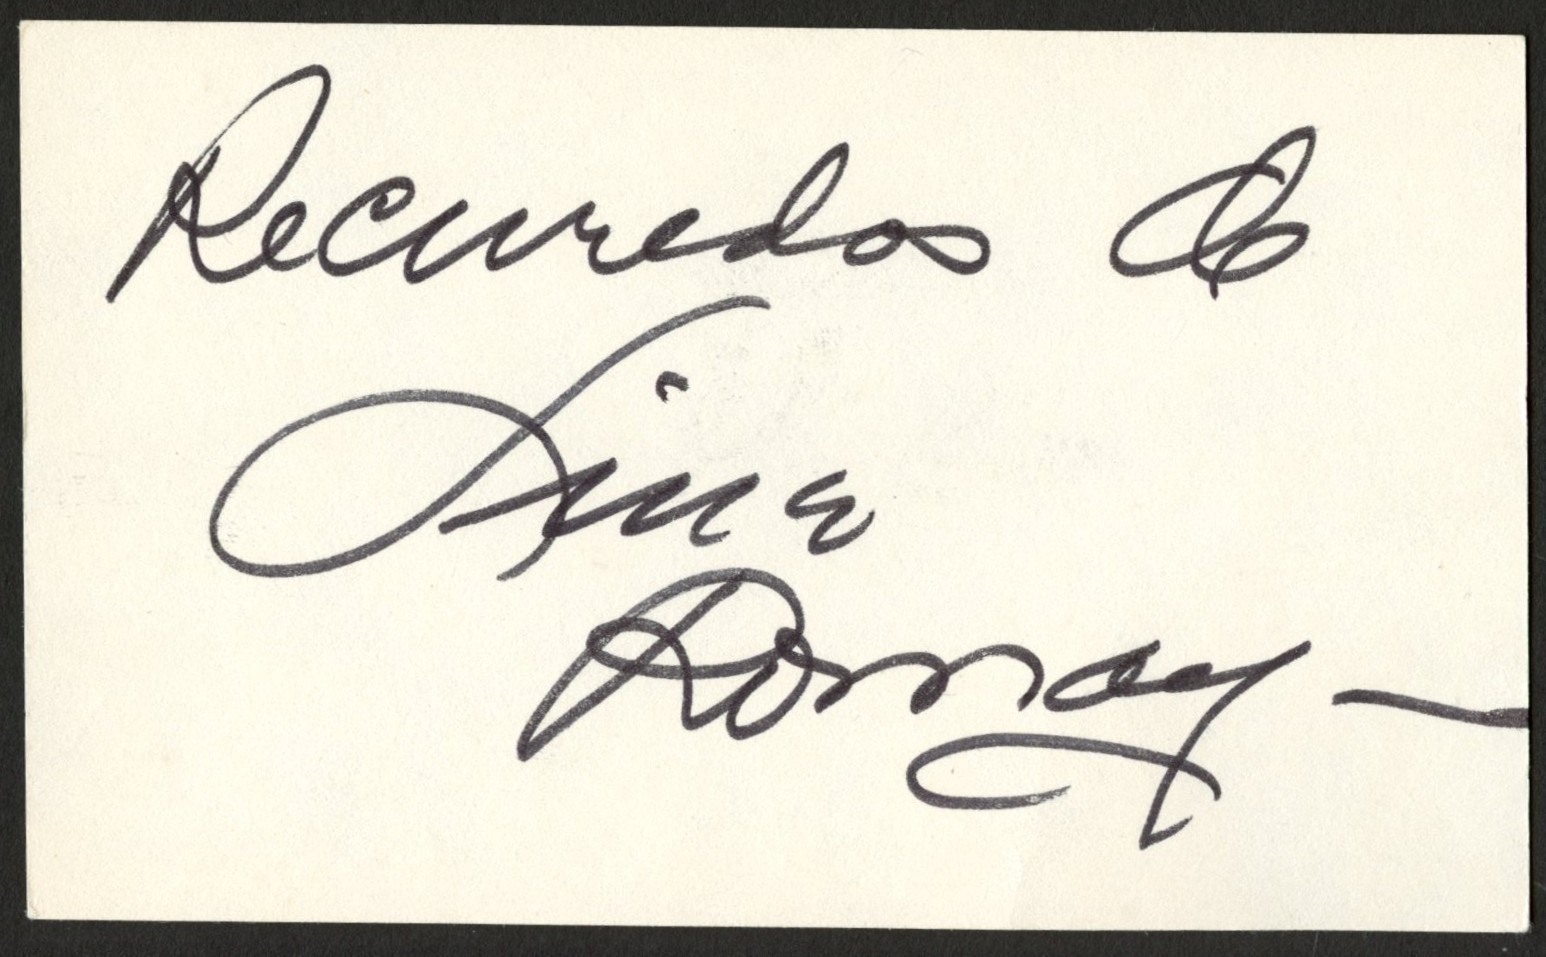 Recuredos de
Lina
Romay